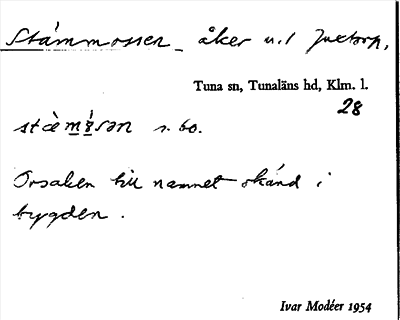 Stámmossen åker u. / Juxtorp,
Tuna sn, Tunaläns hd, Klm. l.
28
s. bo.
Orsaken till namnet okänd i
bygden.
Ivar Modéer 1954